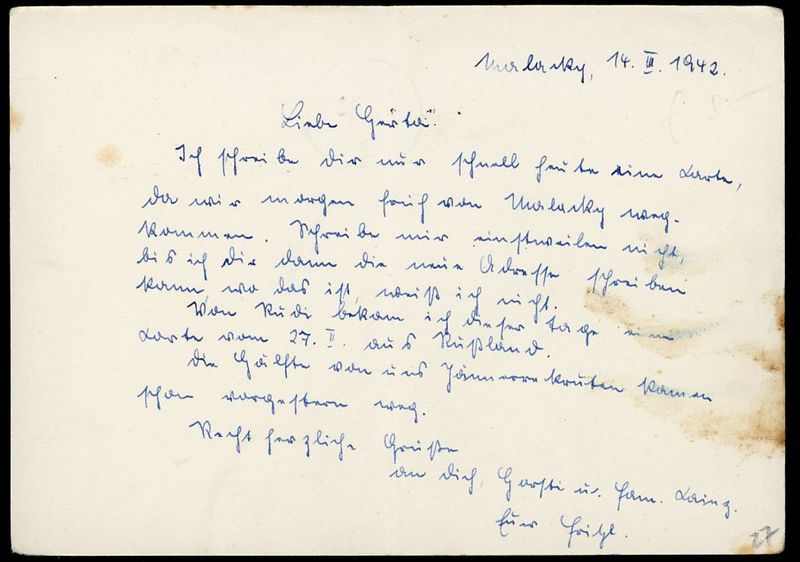 Malacky, 14. III. 1942.
Liebe Gerta!
Ich schreibe dir nur schnell heute eine Karte,
da wir morgen früh von Malacky weg-
kommen. Schreibe mir einstweilen nicht,
bis ich dir dann die neue Adresse schreiben
kann, wo das ist, weiß ich nicht.
Von Rudi bekam ich dieser Tage eine
Karte vom 27. II. aus Rußland.
Die Hälfte von uns Jännerrekruten kamen
schon vorgestern weg.
Recht herzliche Grüße
an dich, Horsti u. Fam. Lainz.
Euer Fritzl.
27